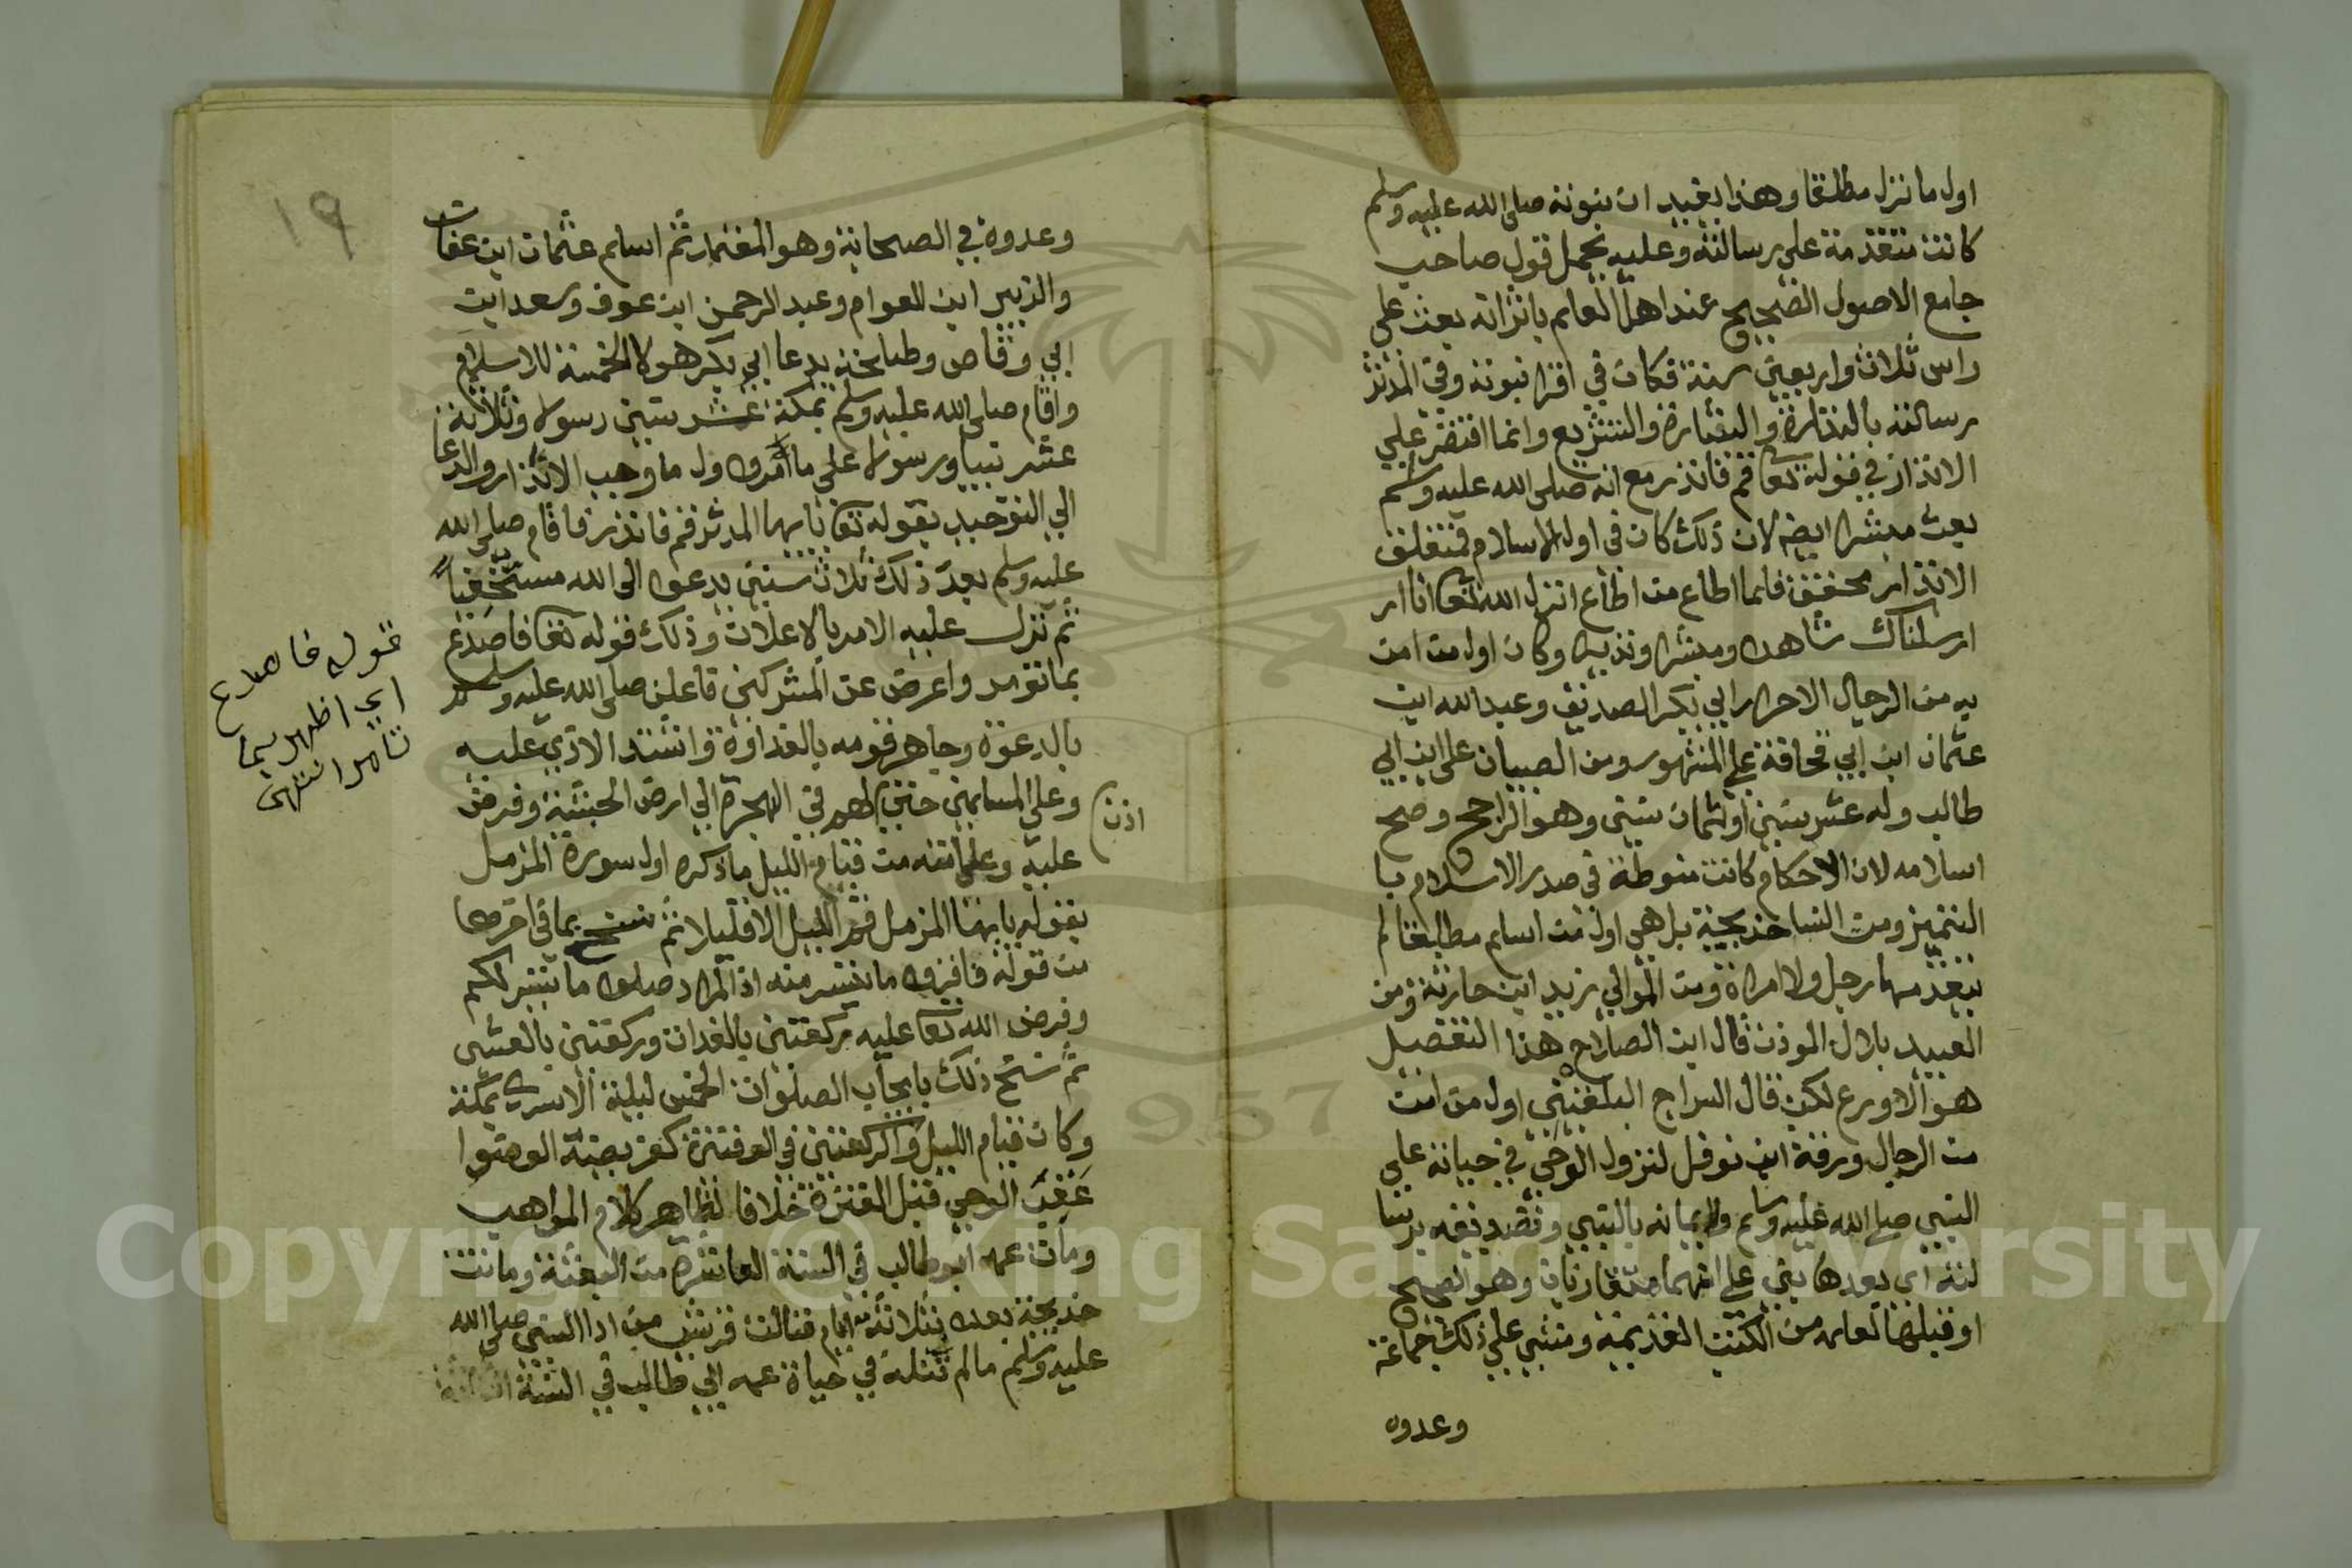 اول ما نزل مطلقا وهذا يفيد ان نبوته صلى الله عليه وسلم
كانت متقدمة على رسالته وعليه يحمل قول صاحب
جامع الاصول الصحيح عند اهل العلم بالاثر انه بعث على
راس ثلاث واربعين سنة فكان في اقرا نبوته وفي المدثر
رسالته بالنذارة والبشارة والتشريع وانما اقتصر على
الانذار في قوله تعا قم فانذر مع انه صلى الله عليه وسلم
بعث مبشرا ايضا لان ذلك كان في اول الاسلام فمتعلق
الانذار محقق فلما اطاع من اطاع انزل الله تعا انا ار
ارسلناك شاهدا ومبشرا ونذيرا وكان اول من امن
به من الرجال الاحرار ابي بكر الصديق وعبد الله ابن
عثمان ابن ابي قحافة على المشهور ومن الصبيان على ابن ابي
طالب وله عشر سنين او ثمان سنين وهو الراجح وصح
اسلامه لان الاحكام كانت منوطة في صدر الاسلام با
التمييز ومن النسا خديجة بل هي اول من اسلم مطلقا لم
يتقدمها رجل ولا امراة ومن الموالي زيد ابن حارثة ومن
العبيد بلال الموذن قال ابن الصلاح هذا التفصيل
هو الاورع لكن قال السراج البلقيني اول من امن
من الرجال ورقة ابن نوفل لنزول الوحي في حياته على
النبي صلى الله عليه وسلم ولايمانه بالنبي وتصديقه برسا
لته اي بعدها بنى على انهما متقارنان وهو الصحيح
او قبلها لعلمه من الكتب القديمة ومشى على ذلك جماعة
وعدوه
١٩
وعدوه في الصحابة وهو المختار ثم اسلم عثمان ابن عفان
والزبير ابن العوام وعبد الرحمن ابن عوف وسعد ابن
ابي وقاص وطلحة بدعا ابي بكر هولا الخمسة للاسلام
واقام صلى الله عليه وسلم بمكة عشر سنين رسولا وثلاثة
عشر نبيا ورسولا على ما واول ما وجب الانذار والدعا
الى التوحيد بقوله تعا يايها المدثر قم فانذر فاقام صلى الله
عليه وسلم بعد ذلك ثلاث سنين يدعو الى الله مستخفيا
ثم نزل عليه الامر بالاعلان وذلك قوله تعا فاصدع
بما تومر واعرض عن المشركين فاعلن صلى الله عليه وسلم
بالدعوة وجاهر قومه بالعداوة واشتد الاذي عليه
وعلى المسلمين حتى اذن لهم في الهجرة الي ارض الحبشة وفرض
عليه وعلى امته من قيام الليل ما ذكره اول سورة المزمل
بقوله يايها المزمل قم الليل الا قليلا ثم نسخ بما في اخرها
من قوله فاقروا ما تيسر منه اذ المراد صلوا ما تيسر لكم
وفرض الله تعا عليه ركعتين بالغداة وركعتين بالعشي
ثم نسخ ذلك بايجاب الصلوات الخمس ليلة الاسري بمكة
وكان قيام الليل والركعتين في
عقب الوحي قبل الفترة خلافا لظاهر كلام المواهب
ومات عمه ابو طالب في السنة العاشرة من البعثة وماتت
خديجة بعده بثلاثة ايام فنالت قريش من اذا النبي صلى الله
عليه وسلم ما لم تنله في حياة عمه ابي طالب في السنة
قوله فاصدع
اي اظهر بما
تامر انتهى